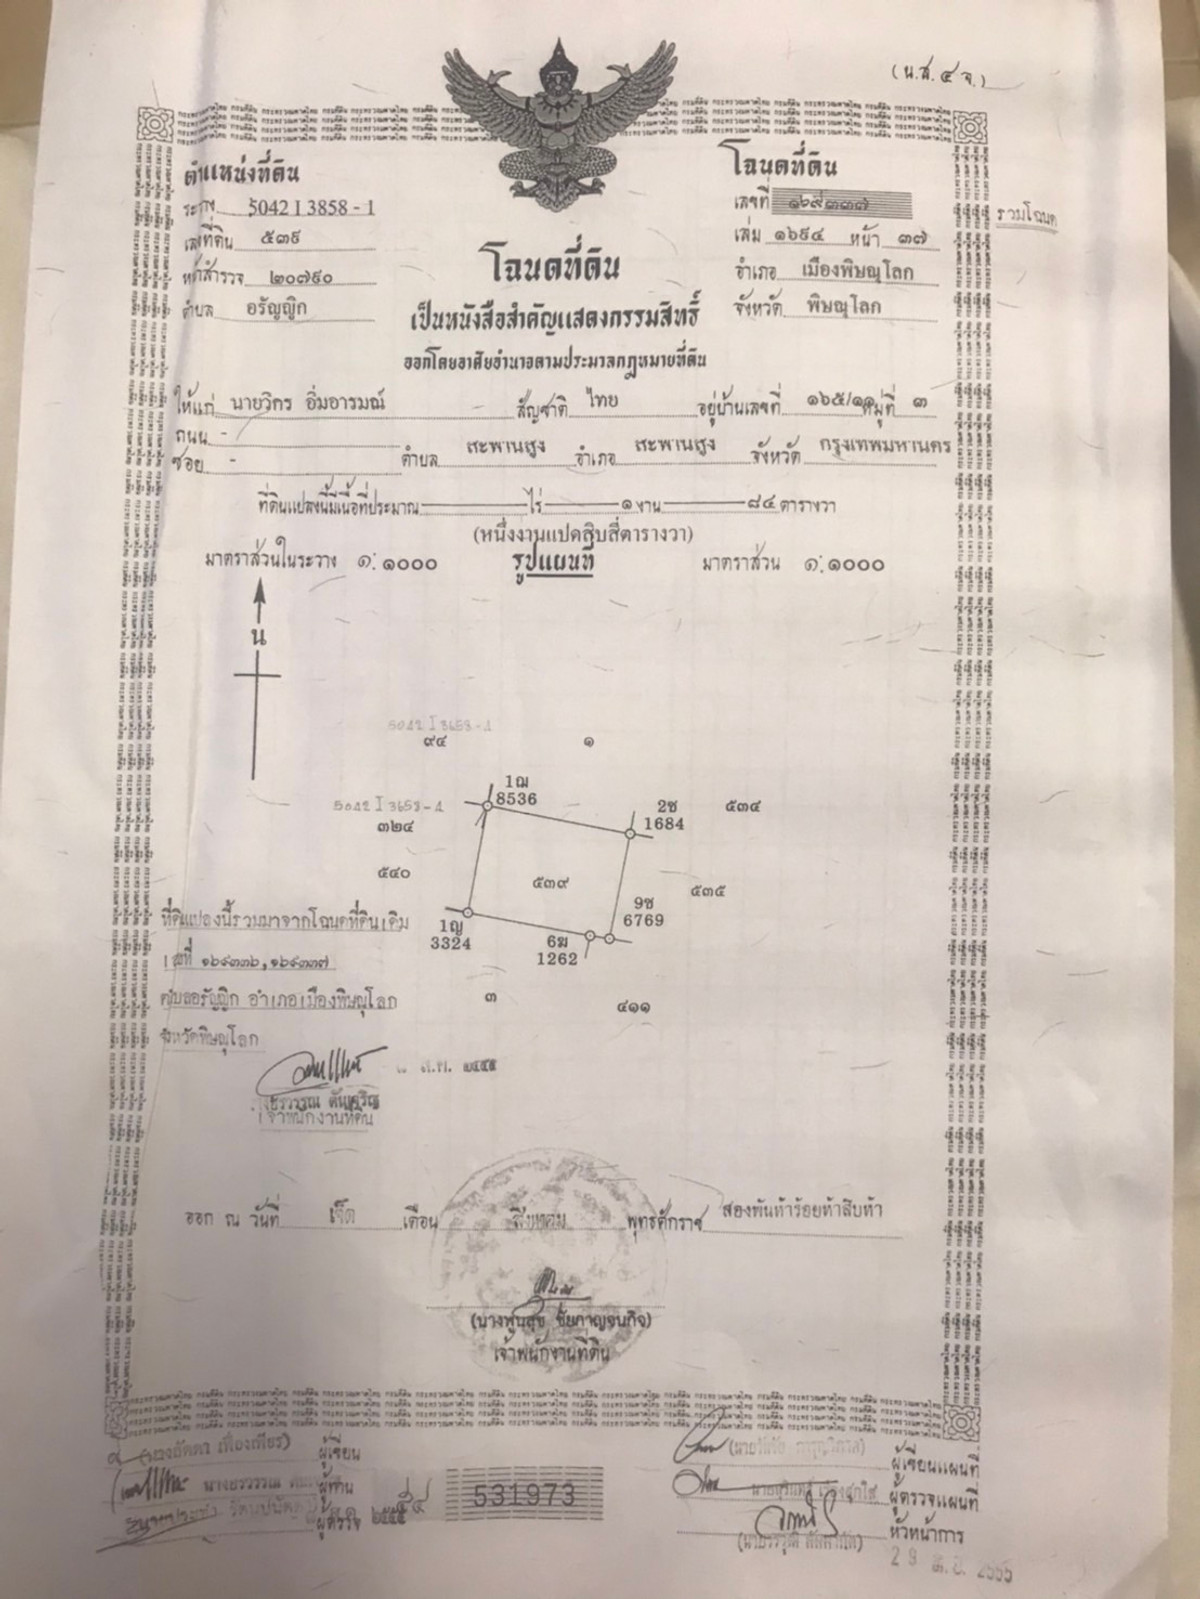 (น.ส. ๔ จ.)
ตำแหน่งที่ดิน
ระวาง 5042 I 3858 - 1
เลขที่ดิน ๕๓๙
หน้าสำรวจ ๒๐๗๙๐
ตำบล อรัญญิก
โฉนดที่ดิน
เลขที่ ๑๒๙๓๓๗
เล่ม ๑๖๙๔ หน้า ๓๗
อำเภอ เมืองพิษณุโลก
จังหวัด พิษณุโลก
รวมโฉนด
โฉนดที่ดิน
เป็นหนังสือสำคัญแสดงกรรมสิทธิ์
ออกโดยอาศัยอำนาจตามประมวลกฎหมายที่ดิน
ให้แก่ นายวิกร อิ่มอารมณ์ สัญชาติ ไทย อยู่บ้านเลขที่ ๑๖๕/๑๑ หมู่ที่ ๓
ถนน -
ซอย - ตำบล สะพานสูง อำเภอ สะพานสูง จังหวัด กรุงเทพมหานคร
ที่ดินแปลงนี้มีเนื้อที่ประมาณ ไร่ ๑ งาน ๘๔ ตารางวา
(หนึ่งงานแปดสิบสี่ตารางวา)
มาตราส่วนในระวาง ๑:๑๐๐๐ รูปแผนที่ มาตราส่วน ๑:๑๐๐๐
น
5042 I 3658-1
๙๔ ๑
1ฌ
8536
5042 I 3658-1
๓๒๔
2ช
1684
๕๓๔
๕๔๐ ๕๓๙ ๕๓๕
9ช
6769
1ญ
3324
6ฆ
1262
๓ ๔๑๑
ที่ดินแปลงนี้รวมมาจากโฉนดที่ดินเดิม
เลขที่ ๑๒๙๓๓๖, ๑๒๙๓๓๗
ตำบลอรัญญิก อำเภอเมืองพิษณุโลก
จังหวัดพิษณุโลก
เจ้าพนักงานที่ดิน
ออก ณ วันที่ เจ็ด เดือน สิงหาคม พุทธศักราช สองพันห้าร้อยห้าสิบห้า
(นางพูนสุข ชัยกาญจนกิจ)
เจ้าพนักงานที่ดิน
ผู้เขียน
ผู้ทาน
ผู้ตรวจ
531973
ผู้เขียนแผนที่
ผู้ตรวจแผนที่
หัวหน้าการ